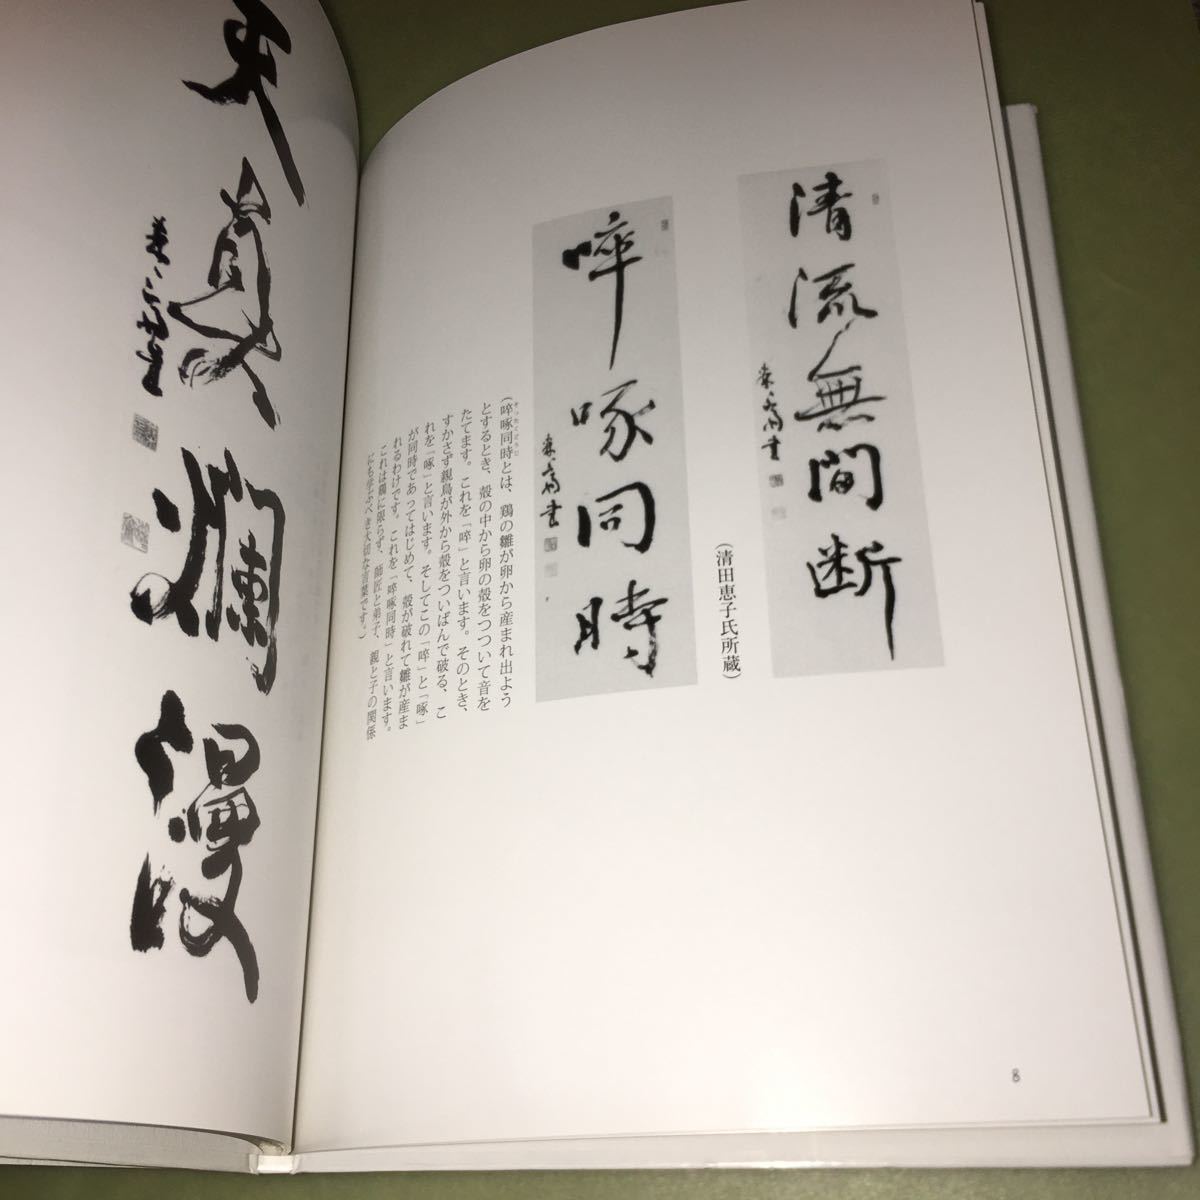 清流無間断
(清田恵子氏所蔵)
啐啄同時
(啐啄同時とは、鶏の雛が卵から産まれ出よう
とするとき、殻の中から卵の殻をつついて音を
たてます。これを「啐」と言います。そのとき、
すかさず親鳥が外から殻をついばんで破る、こ
れを「啄」と言います。そしてこの「啐」と「啄」
が同時であってはじめて、殻が破れて雛が産ま
れるわけです。これを「啐啄同時」と言います。
これは鶏に限らず、師匠と弟子、親と子の関係
にも学ぶべき大切な言葉です。)
8
天真爛漫